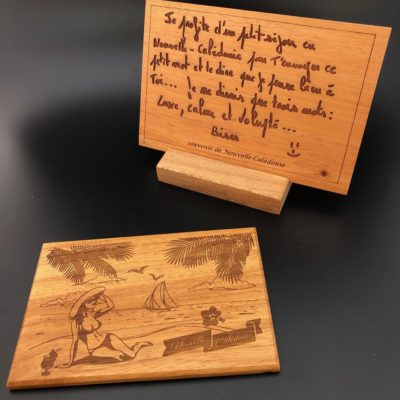 Je profite d'un ptit séjour en
Nouvelle-Calédonie pour t'envoyer ce
ptit mot et te dire que je pense bien à
Toi... Je me dirais que trois mots:
Luxe, calme et volupté...
Bises
souvenir de Nouvelle-Calédonie
Nouvelle Calédonie